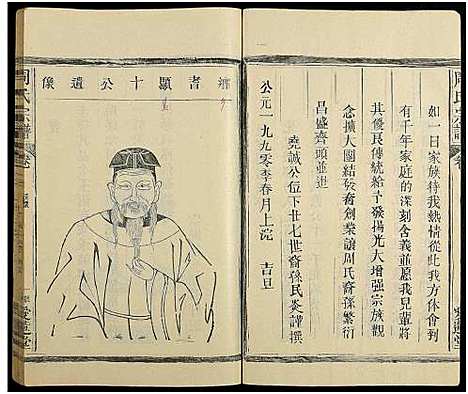 周氏宗譜
如一日家族待我熱情從此我方体會到
有千年家庭的深刻含義並愿我兒輩將
其優良傳統給予發揚光大增强宗族觀
念擴大團结致奋創業讓周氏裔孫繁衍
昌盛齊頭並進
堯誠公位下廿七世裔孫民炎謹撰
公元一九九零季春月上浣 吉旦
顯十公遺像
周氏宗譜
卷
愛蓮堂